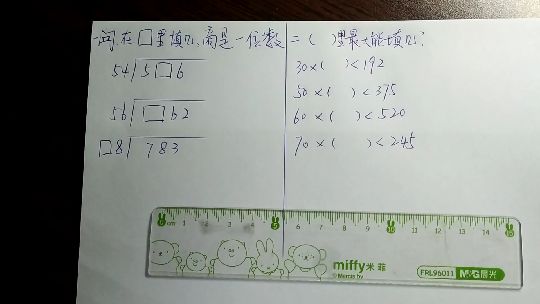 一、问在□里填几,商是一位数
54√5□6
56√□62
□8√783
二( )里最大能填几?
30×( )<192
50×( )<375
60×( )<520
70×( )<245
0cm 1 2 3 4 5 6 7 8 9 10 11 12 13 14 15
miffy米菲
© Mercis bv
FRL96011 M&G晨光